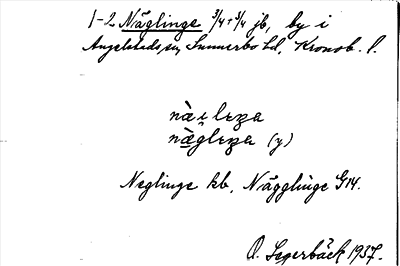 1-2 Näglinge 3/4+3/4 jb, by i
Angelstads sn, Sunnerbo hd, Kronob. l.
nægleŋa (y)
Neglinge kb, Nägglinge G14.
O. Lagerbäck 1937.